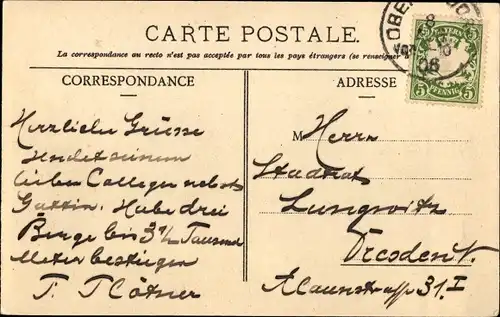 CARTE POSTALE.
La correspondance au recto n'est pas acceptée par tous les pays étrangers (se renseigner
CORRESPONDANCE
ADRESSE
BAYERN
5 5
PFENNIG
8
06
Herzliche Grüsse
sendet seinem
lieben Collegen nebst
Gattin. Habe drei
Berge bis 3½ Tausend
Meter bestiegen
M
Herrn
Stadtrat
Lungwitz
Dresden N.
Alaunstrasse 31. I